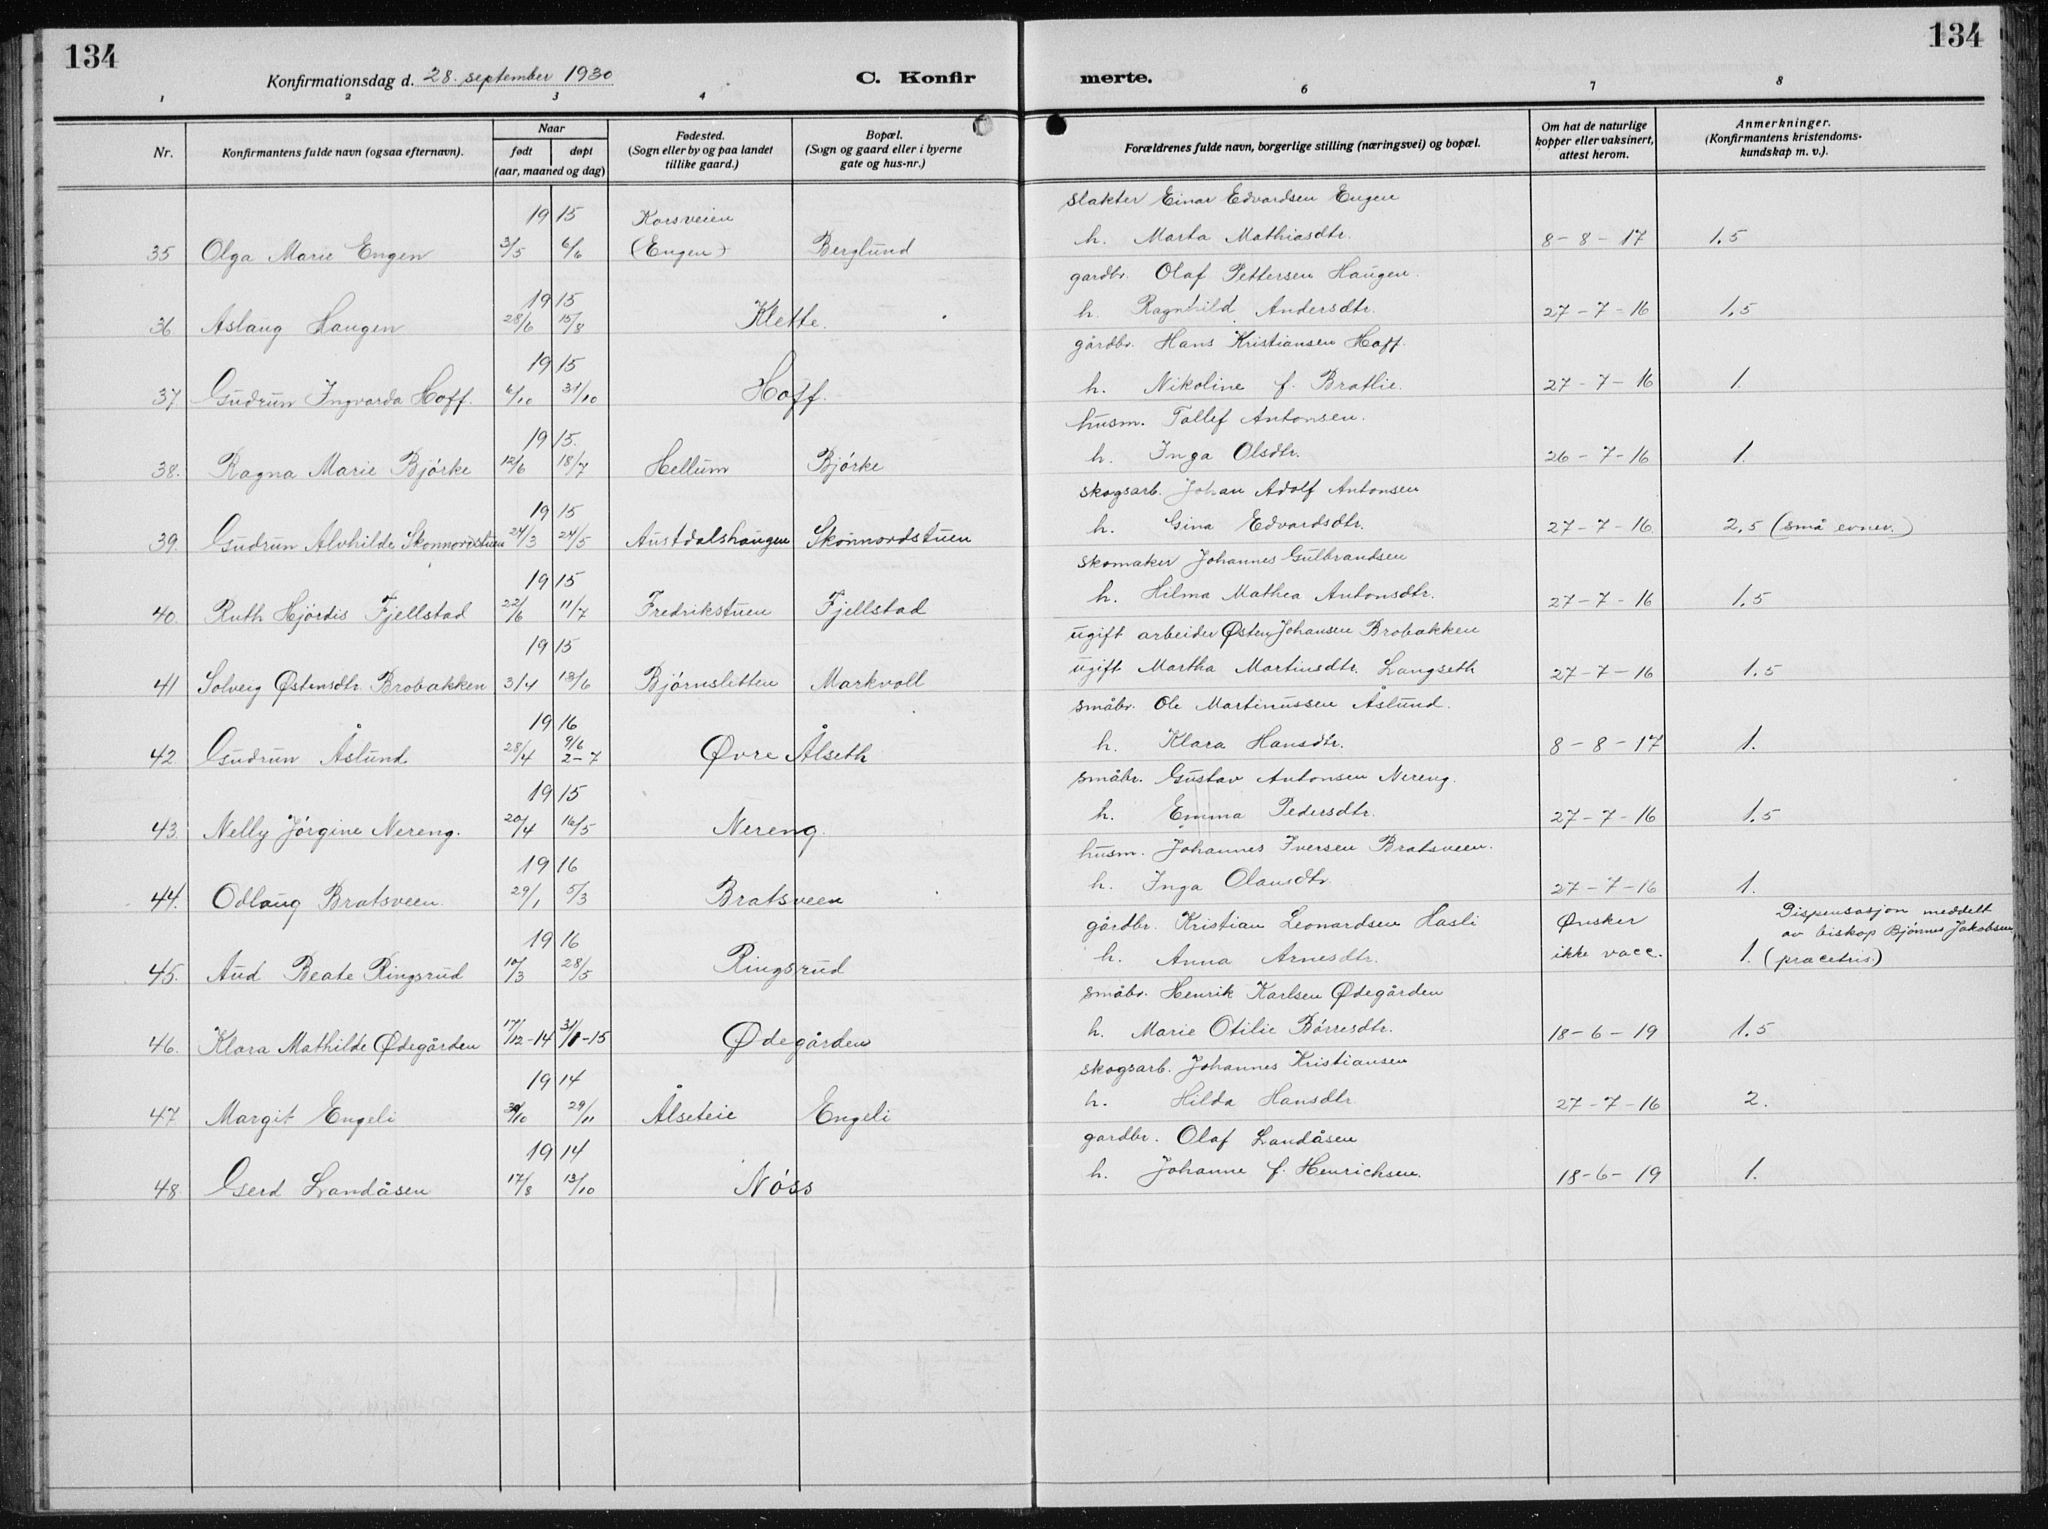 134
134
Konfirmationsdag d. 28. september 1930
C. Konfir
merte.
1 2 3 4 6 7 8
Nr.
Konfirmantens fulde navn (ogsaa efternavn).
Naar
født døpt
(aar, maaned og dag)
Fødested.
(Sogn eller by og paa landet
tillike gaard.)
Bopæl.
(Sogn og gaard eller i byerne
gate og hus-nr.)
Forældrenes fulde navn, borgerlige stilling (næringsvei) og bopæl.
Om hat de naturlige
kopper eller vaksinert,
attest herom.
Anmerkninger.
(Konfirmantens kristendoms-
kundskap m. v.).
19 15 Korsveien slakter Einar Edvardsen Engen
35 Olga Marie Engen 3/5 6/6 (Engen) Berglund h. Marta Mathiasdtr. 8-8-17 1,5
19 15 gardbr. Olaf Pettersen Haugen.
36 Aslaug Haugen 28/6 15/8 Klette. h. Ragnhild Andersdtr. 27-7-16 1,5
19 15 gårdbr. Hans Kristiansen Hoff.
37 Gudrun Ingvarda Hoff. 6/10 31/10 Hoff. h. Nikoline f. Bratlie. 27-7-16 1.
19 15. husm. Tollef Antonsen.
38. Ragna Marie Bjørke 12/6 18/7 Hellum Bjørke h. Inga Olsdtr. 26-7-16 1.
19 15 skogsarb. Johan Adolf Antonsen
39. Gudrun Alvhilde Skonnordstuen 24/3 24/5 Austdalshaugen Skonnordstuen h. Gina Edvardsdtr. 27-7-16 2,5 (små evner.)
19 15 skomaker Johannes Gulbrandsen
40. Ruth Hjørdis Fjellstad 22/6 11/7 Fredrikstuen Fjellstad h. Hilma Mathea Antonsdtr. 27-7-16 1.5
19 15 ugift arbeider Østen Johansen Brobakken
41 Solveig Østensdtr. Brobakken 3/4 13/6 Bjørnslitten Markvoll ugift Martha Martinsdtr. Langseth 27-7-16 1.5
19 16 småbr. Ole Martinussen Åslund.
42 Gudrun Åslund 28/4 9/6 2-7 Øvre Ålseth h. Klara Hansdtr. 8-8-17 1.
19 15 småbr. Gustav Antonsen Nereng.
43. Nelly Jørgine Nereng. 20/4 16/5 Nereng. h. Emma Pedersdtr. 27-7-16 1.5
19 16 husm. Johannes Iversen Bratsveen.
44. Odlaug Bratsveen. 29/1 5/3 Bratsveen h. Inga Olausdtr. 27-7-16 1.
19 16 gårdbr. Kristian Leonardsen Hasli Ønsker Dispensasjon meddelt
av biskop Bjønnes Jakobsen
45. Aud Beate Ringsrud 10/3 28/5 Ringsrud h. Anna Arnesdtr. ikke vacc. 1. (præcetris.)
småbr. Henrik Karlsen Ødegården
46. Klara Mathilde Ødegården 17/12-14 31/1-15 Ødegården h. Marie Otilie Børresdtr. 18-6-19 1.5
19 14 skogsarb. Johannes Kristiansen
47 Margit Engeli 30/10 29/11 Ålseteie Engeli h. Hilda Hansdtr. 27-7-16 2.
19 14 gardbr. Olaf Landåsen
48. Gerd Landåsen 17/8 13/10 Nøss h. Johanne f. Henrichsen. 18-6-19 1.